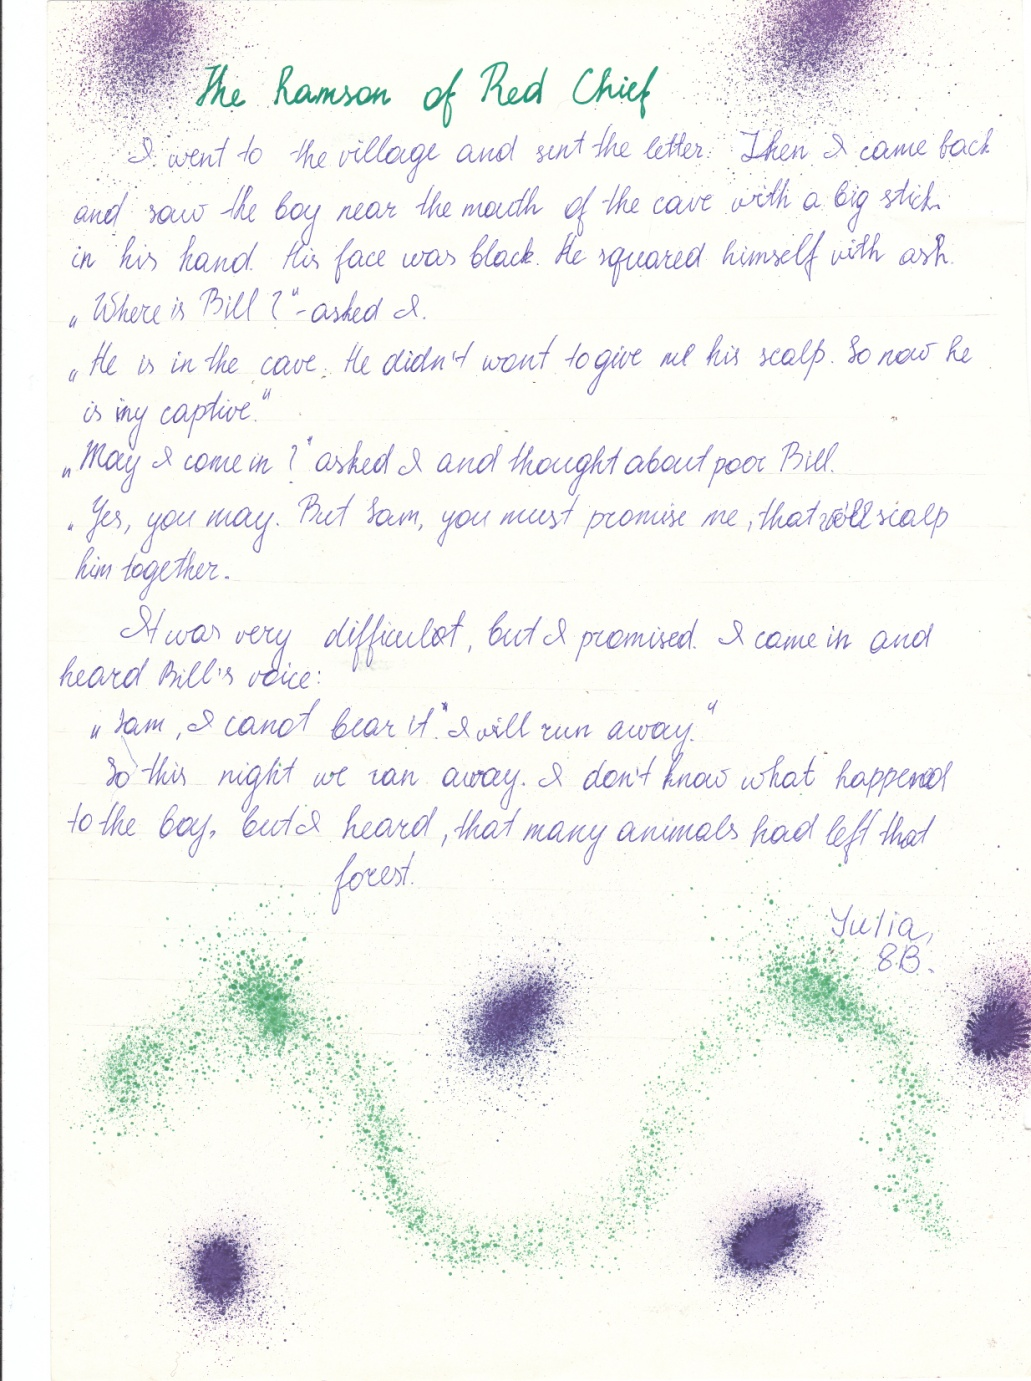 The Ramson of Red Chief
I went to the village and sent the letter. Then I came back
and saw the boy near the mouth of the cave with a big stick
in his hand. His face was black. He squared himself with ash.
„Where is Bill?“ - asked I.
„He is in the cave. He didn't want to give me his scalp. So now he
is my captive.“
„May I come in?“ asked I and thought about poor Bill.
„Yes, you may. But Sam, you must promise me, that scalp
him together.
It was very difficulot, but I promised. I came in and
heard Bill's voice:
„Sam, I canot bear it.“ I will run away.“
So this night we ran away. I don't know what happened
to the boy, but I heard, that many animals had left that
forest.
Yulia,
8B.